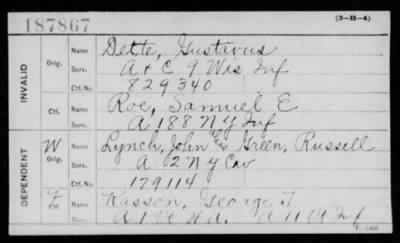 187867
(3-H-4)
INVALID
Orig.
Name
Dette, Gustavus
Serv.
A & C 9 Wis Inf
Ctf. No.
829340
Ctf.
Name
Roe, Samuel E
Serv.
A 188 N Y Inf
DEPENDENT
W
Orig.
Name
Lynch, John Green, Russell
Serv.
A 2 N Y Cav
Ctf. No.
179114
Ctf.
Name
Kasson, George T
Serv.
A 1 Vt H A. A 11 Vt Inf